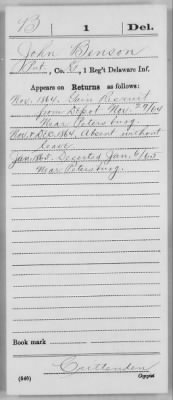 B | 1 | Del.
John Benson
Pvt., Co. G, 1 Reg't Delaware Inf.
Appears on Returns as follows:
Nov. 1864. Gain Recruit
from Depot Nov. 29/64
Near Petersburg.
Nov & Dec. 1864. Absent without
leave.
Jan. 1865. Deserted Jan. 6/65
Near Petersburg.
Book mark
Crittenden
(546) Copyist